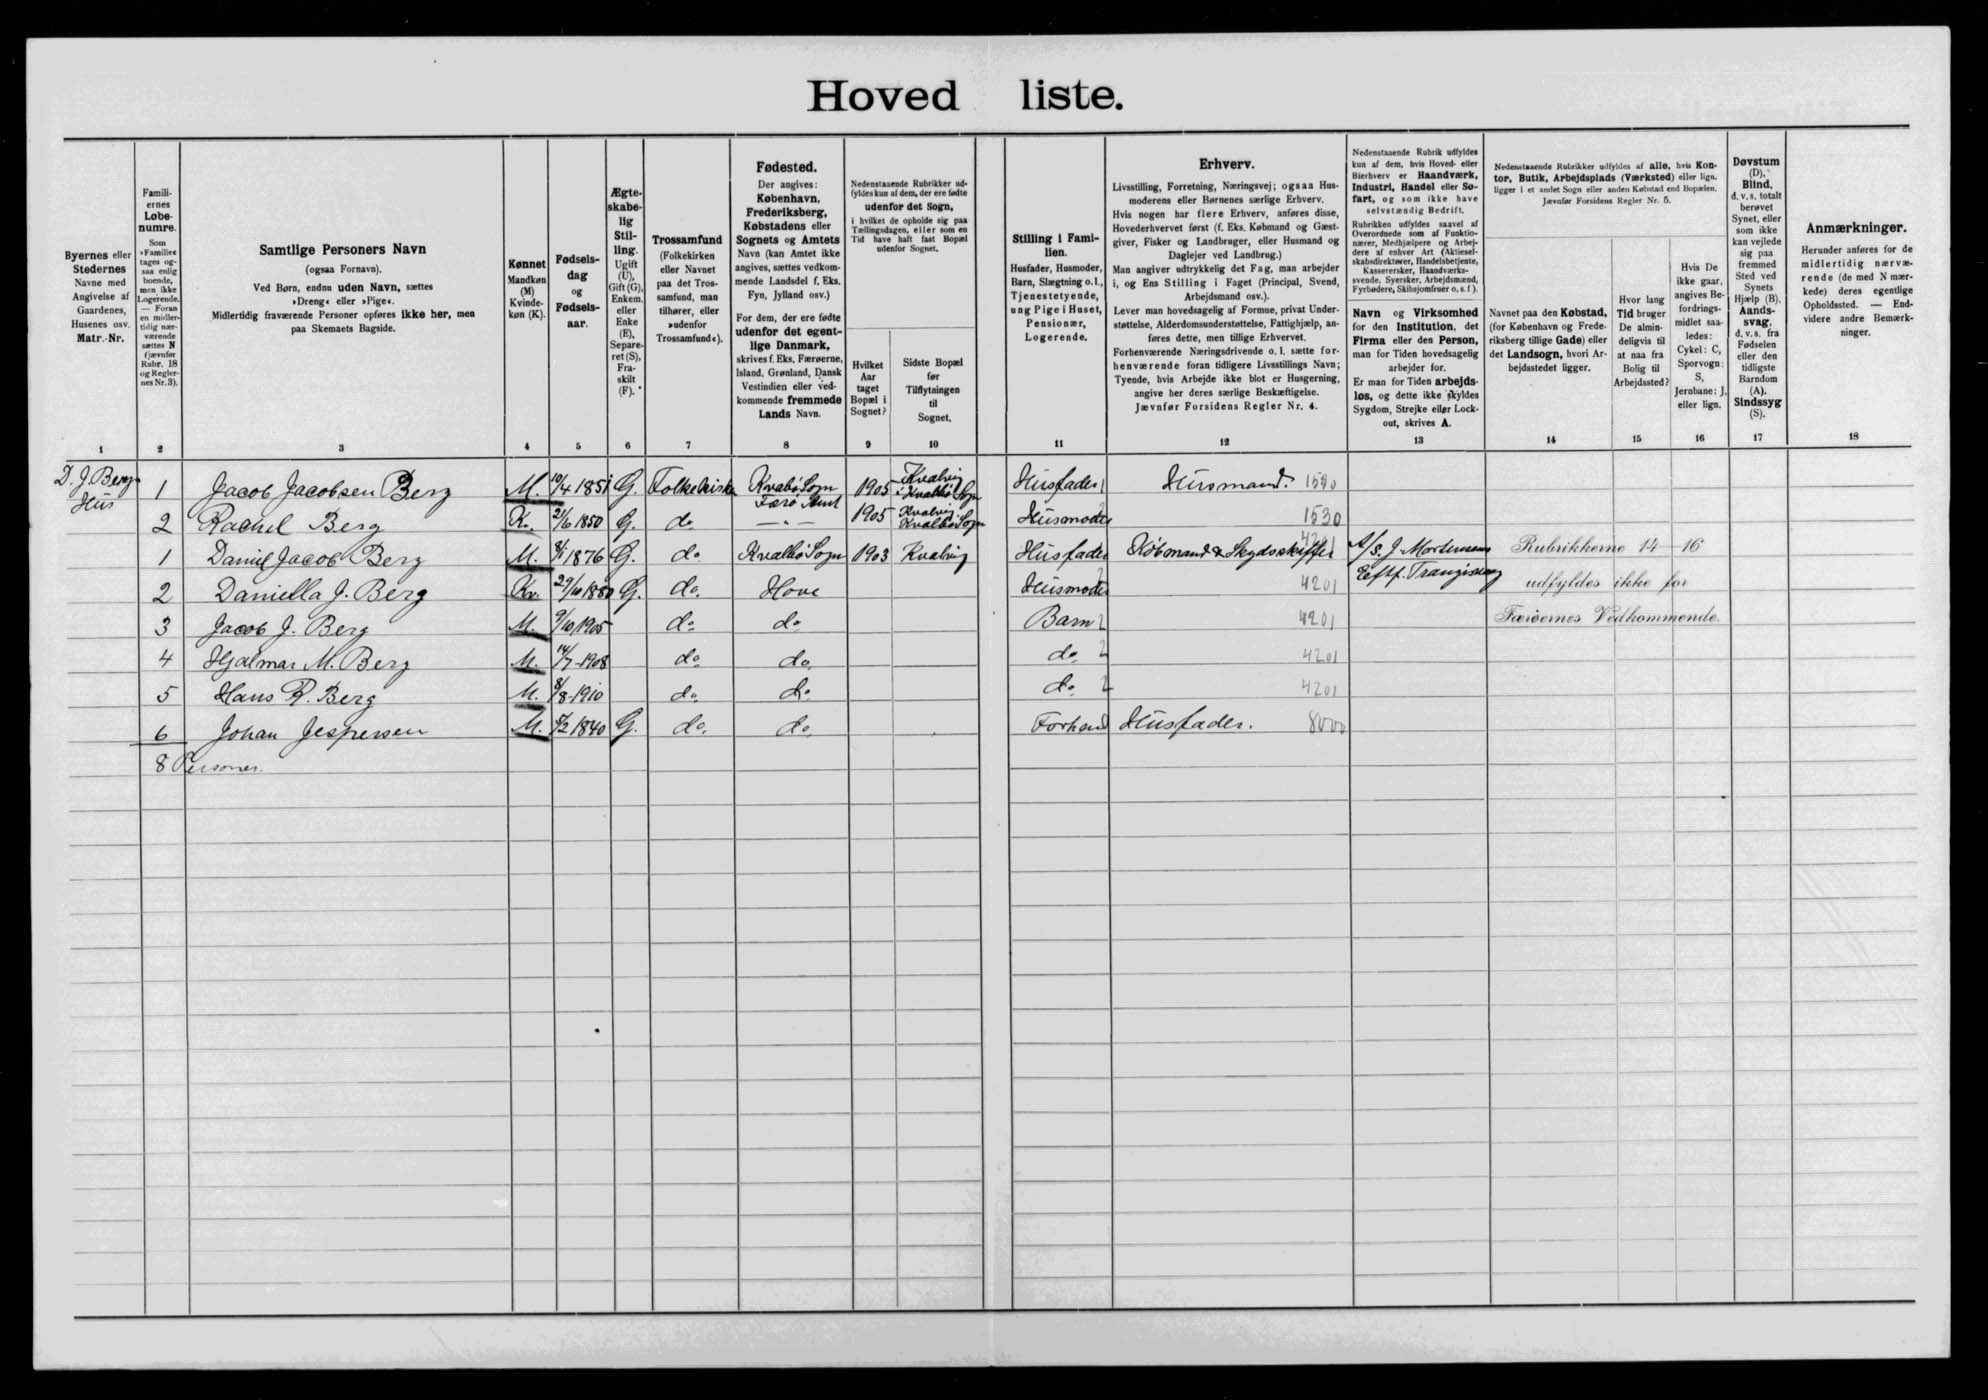 Hoved liste.
Byernes eller
Stedernes
Navne med
Angivelse af
Gaardenes,
Husenes osv.
Matr.-Nr.
1
Famili-
ernes
Løbe-
numre.
Som
»Familie«
tages og-
saa enlig
boende,
men ikke
Logerende.
— Foran
en midler-
tidig nær-
værende
sættes N
(jævnfør
Rubr. 18
og Regler-
nes Nr. 3).
2
Samtlige Personers Navn
(ogsaa Fornavn).
Ved Børn, endnu uden Navn, sættes
»Dreng« eller »Pige«.
Midlertidig fraværende Personer opføres ikke her, men
paa Skemaets Bagside.
3
Kønnet
Mandkøn
(M)
Kvinde-
køn (K).
4
Fødsels-
dag
og
Fødsels-
aar.
5
Ægte-
skabe-
lig
Stil-
ling.
Ugift
(U),
Gift (G),
Enkem.
eller
Enke
(E),
Separe-
ret (S),
Fra-
skilt
(F).
6
Trossamfund
(Folkekirken
eller Navnet
paa det Tros-
samfund, man
tilhører, eller
»udenfor
Trossamfund«).
7
Fødested.
Der angives:
København,
Frederiksberg,
Købstadens eller
Sognets og Amtets
Navn (kan Amtet ikke
angives, sættes vedkom-
mende Landsdel f. Eks.
Fyn, Jylland osv.)
For dem, der ere fødte
udenfor det egent-
lige Danmark,
skrives f. Eks. Færøerne,
Island, Grønland, Dansk
Vestindien eller ved-
kommende fremmede
Lands Navn.
8
Nedenstaaende Rubrikker ud-
fyldes kun af dem, der ere fødte
udenfor det Sogn,
i hvilket de opholde sig paa
Tællingsdagen, eller som en
Tid have haft fast Bopæl
udenfor Sognet.
Hvilket
Aar
taget
Bopæl i
Sognet?
9
Sidste Bopæl
før
Tilflytningen
til
Sognet.
10
Stilling i Fami-
lien.
Husfader, Husmoder,
Barn, Slægtning o. l.,
Tjenestetyende,
ung Pige i Huset,
Pensionær,
Logerende.
11
Erhverv.
Livsstilling, Forretning, Næringsvej; ogsaa Hus-
moderens eller Børnenes særlige Erhverv.
Hvis nogen har flere Erhverv, anføres disse,
Hovederhvervet først (f. Eks. Købmand og Gæst-
giver, Fisker og Landbruger, eller Husmand og
Daglejer ved Landbrug.)
Man angiver udtrykkelig det Fag, man arbejder
i, og Ens Stilling i Faget (Principal, Svend,
Arbejdsmand osv.).
Lever man hovedsagelig af Formue, privat Under-
støttelse, Alderdomsunderstøttelse, Fattighjælp, an-
føres dette, men tillige Erhvervet.
Forhenværende Næringsdrivende o. l. sætte for-
henværende foran tidligere Livsstillings Navn;
Tyende, hvis Arbejde ikke blot er Husgerning,
angive her deres særlige Beskæftigelse.
Jævnfør Forsidens Regler Nr. 4.
12
Nedenstaaende Rubrik udfyldes
kun af dem, hvis Hoved- eller
Bierhverv er Haandværk,
Industri, Handel eller Sø-
fart, og som ikke have
selvstændig Bedrift.
Rubrikken udfyldes saavel af
Overordnede som af Funktio-
nærer, Medhjælpere og Arbej-
dere af enhver Art (Aktiesel-
skabsdirektører, Handelsbetjente,
Kassererske, Haandværks-
svende, Syersker, Arbejdsmænd,
Fyrbødere, Skibsjomfruer o. s. f.).
Navn og Virksomhed
for den Institution, det
Firma eller den Person,
man for Tiden hovedsagelig
arbejder for.
Er man for Tiden arbejds-
løs, og dette ikke skyldes
Sygdom, Strejke eller Lock-
out, skrives A.
13
Nedenstaaende Rubrikker udfyldes af alle, hvis Kon-
tor, Butik, Arbejdsplads (Værksted) eller lign.
ligger i et andet Sogn eller anden Købstad end Bopælen.
Jævnfør Forsidens Regler Nr. 5.
Navnet paa den Købstad,
(for København og Frede-
riksberg tillige Gade) eller
det Landsogn, hvori Ar-
bejdsstedet ligger.
14
Hvor lang
Tid bruger
De almin-
deligvis til
at naa fra
Bolig til
Arbejdssted?
15
Hvis De
ikke gaar,
angives Be-
fordrings-
midlet saa-
ledes:
Cykel: C,
Sporvogn:
S,
Jernbane: J,
eller lign.
16
Døvstum
(D),
Blind,
d. v. s. totalt
berøvet
Synet, eller
som ikke
kan vejlede
sig paa
fremmed
Sted ved
Synets
Hjælp (B).
Aands-
svag,
d. v. s. fra
Fødselen
eller den
tidligste
Barndom
(A).
Sindssyg
(S).
17
Anmærkninger.
Herunder anføres for de
midlertidig nærvæ-
rende (de med N mær-
kede) deres egentlige
Opholdssted. — End-
videre andre Bemærk-
ninger.
18
D. J. Bergs Hus 1 Jacob Jacobsen Berg M. 10/4 1851 G. Folkekirke Kvalbø Sogn Færø Amt 1905 Kvalvig i Kvalbø Sogn Husfader 1 Husmand. 1530
2 Rachel Berg K. 21/6 1850 G. do — " — 1905 Kvalvig Kvalbø Sogn Husmoder 1530
1 Daniel Jacob Berg M. 8/1 1876 G. do Kvalbø Sogn 1903 Kvalvig Husfader Købmand & Skydsskaffer 4201 A/S. J. Mortensens Eftf. Trangisvaag Rubrikkerne 14—16
2 Daniella J. Berg Kv. 29/10 1880 G. do. Hove Husmoder 4201 udfyldes ikke for
3 Jacob J. Berg M. 9/10 1905 do do Barn 2 4201 Færøernes Vedkommende.
4 Hjalmar M. Berg M. 14/7-1908 do do. do 2 4201
5 Hans R. Berg M. 8/8-1910 do do do 2 4201
6 Johan Jespersen M. 5/2 1840 G. do. do. Forhen Husfader. 8000
8 Personer.